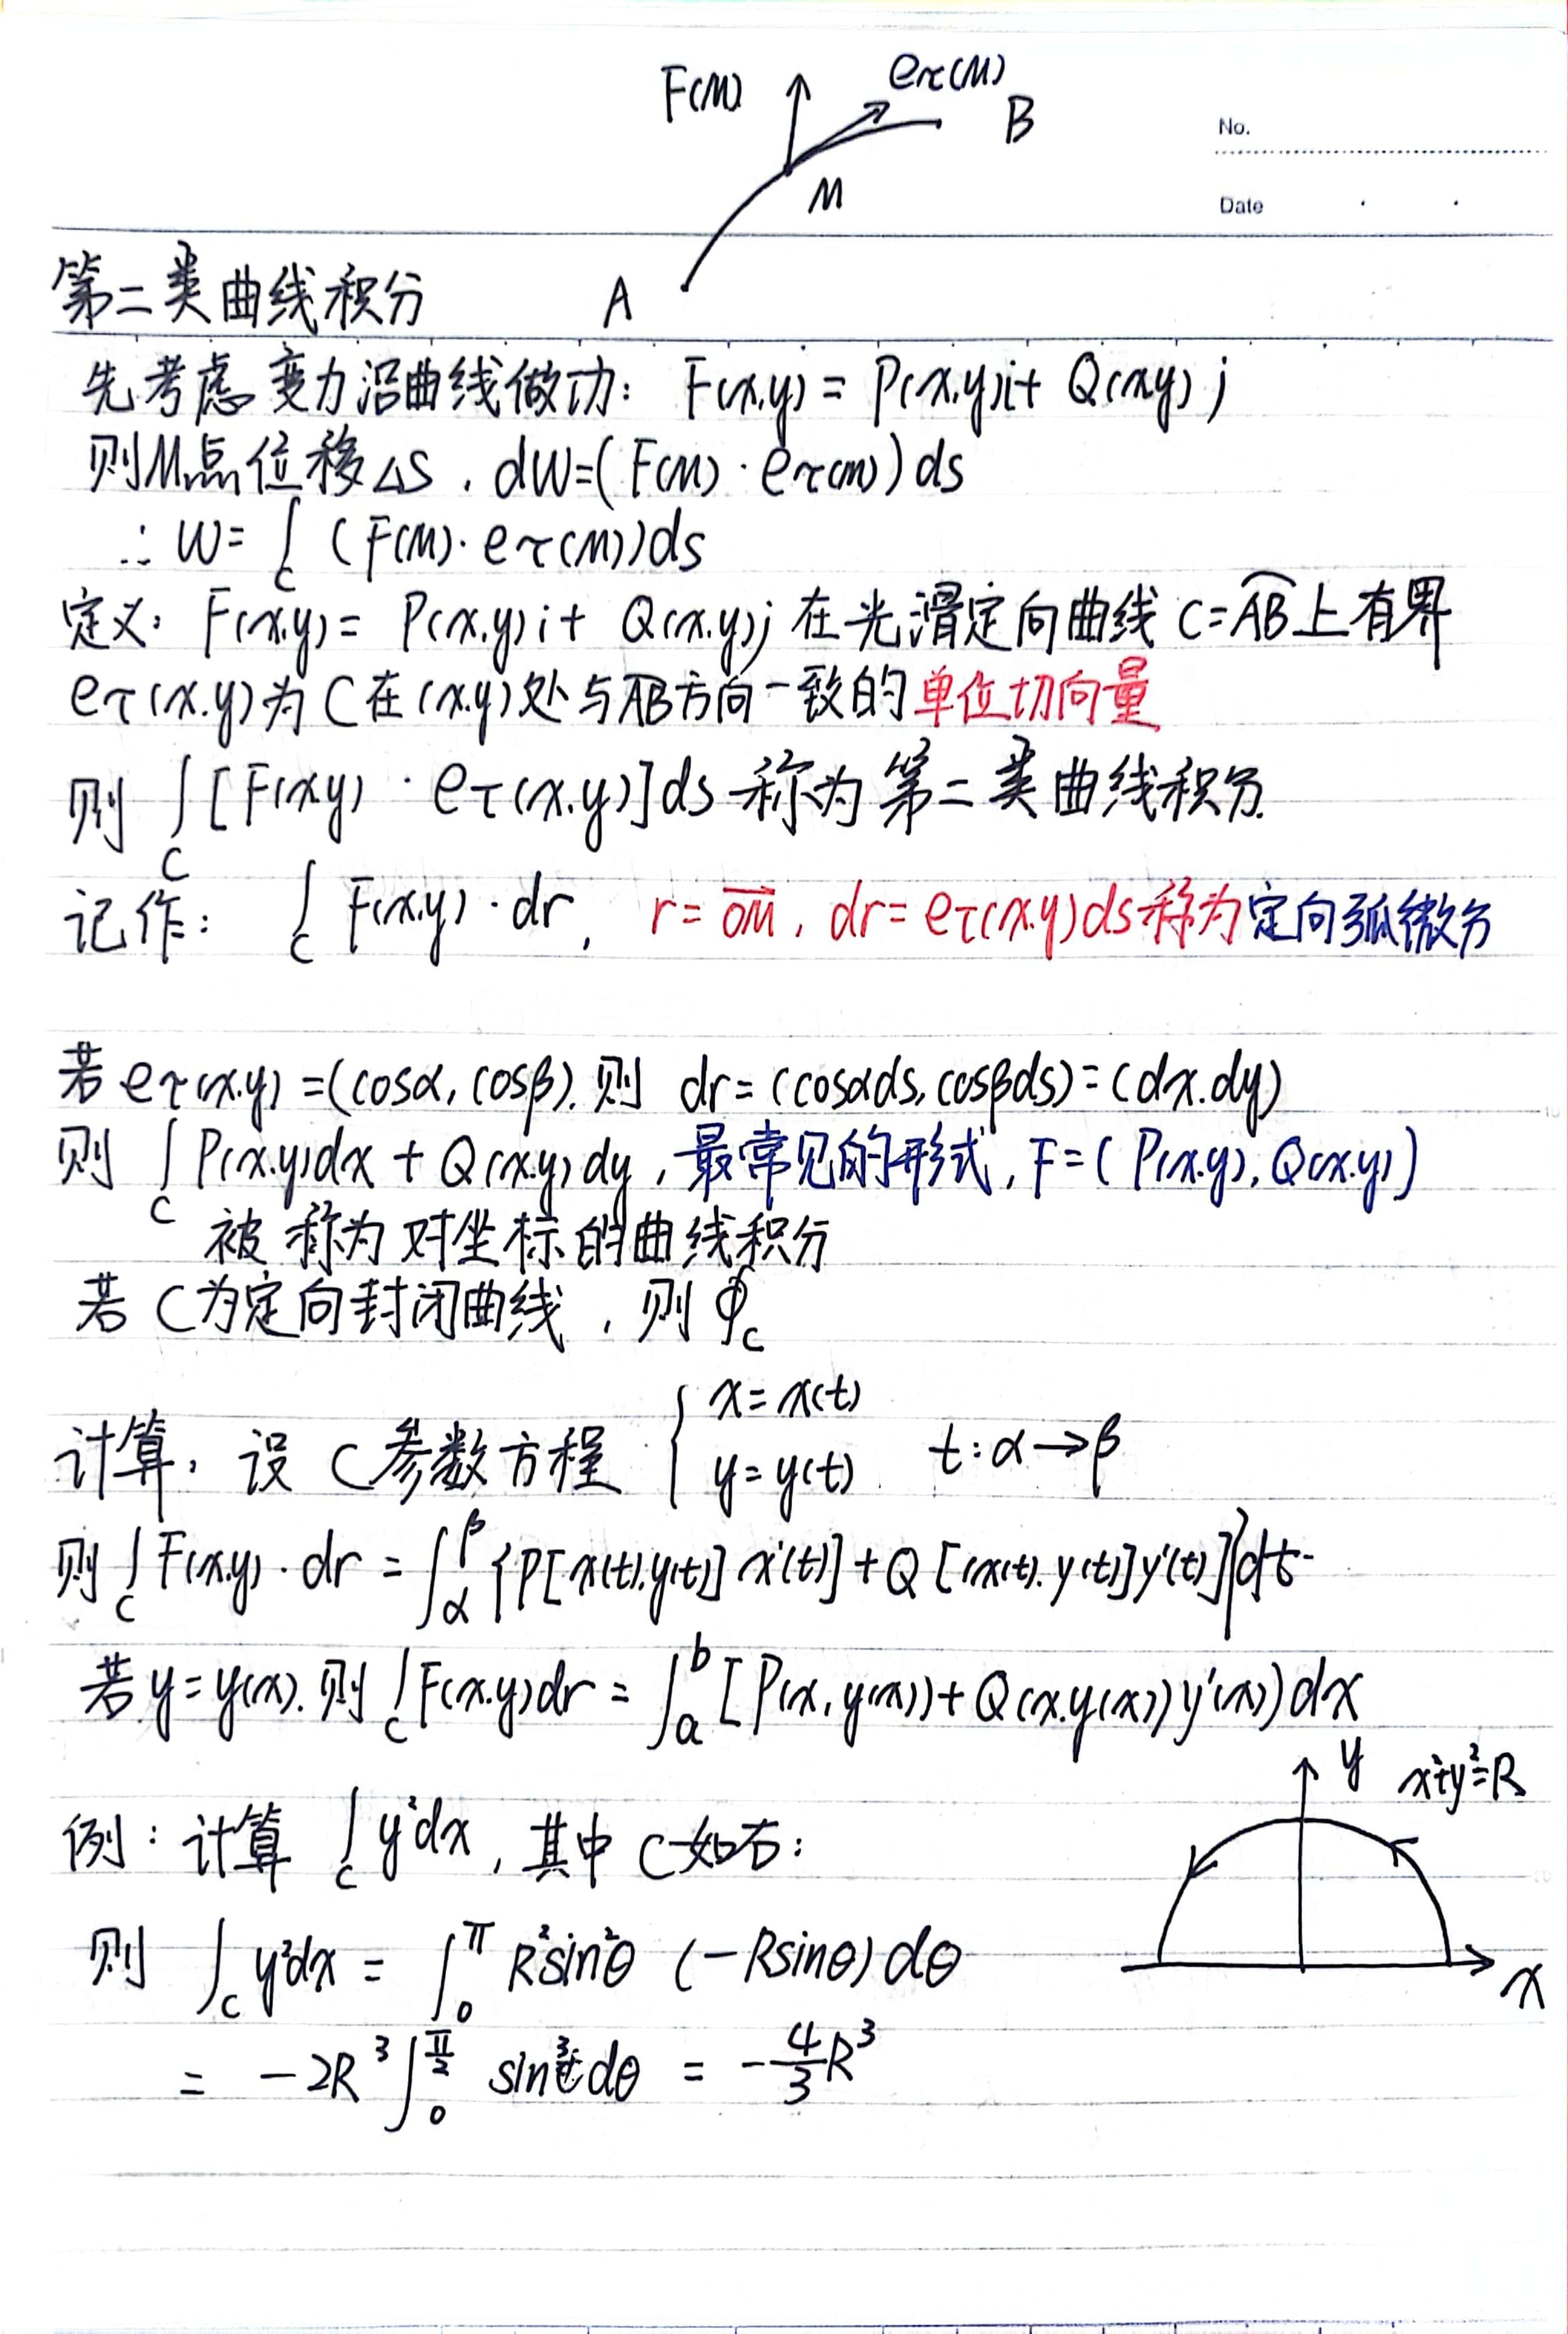 F(M) eτ(M)
B
No.
M
Date
第二类曲线积分 A
先考虑变力沿曲线做功: F(x,y) = P(x,y)i + Q(x,y)j
则M点位移△S, dW=(F(M)·eτ(M))ds
∴ W=∫_C (F(M)·eτ(M))ds
定义: F(x,y) = P(x,y)i + Q(x,y)j 在光滑定向曲线 C=AB上有界
eτ(x,y)为C在(x,y)处与AB方向一致的单位切向量
则 ∫_C [F(x,y)·eτ(x,y)]ds 称为第二类曲线积分.
记作: ∫_C F(x,y)·dr, r=OM, dr=eτ(x,y)ds称为定向弧微分
若eτ(x,y)=(cosα,cosβ),则 dr=(cosαds,cosβds)=(dx,dy)
则 ∫_C P(x,y)dx + Q(x,y)dy, 最常见的形式, F=(P(x,y),Q(x,y))
被称为对坐标的曲线积分
若C为定向封闭曲线, 则∮_C
计算, 设C参数方程 { x=x(t)
y=y(t) t:α→β
则∫_C F(x,y)·dr = ∫_α^β {P[x(t),y(t)]x'(t)]+Q[(x(t),y(t)]y'(t)]}dt
若y=y(x),则∫_C F(x,y)dr = ∫_a^b [P(x,y(x))+Q(x,y(x))y'(x))dx
y x²+y²=R
例: 计算 ∫_C y²dx, 其中C如右:
则 ∫_C y²dx = ∫_0^π R²sin²θ (-Rsinθ)dθ
x
= -2R³∫_0^{π/2} sin³ dθ = -4/3 R³